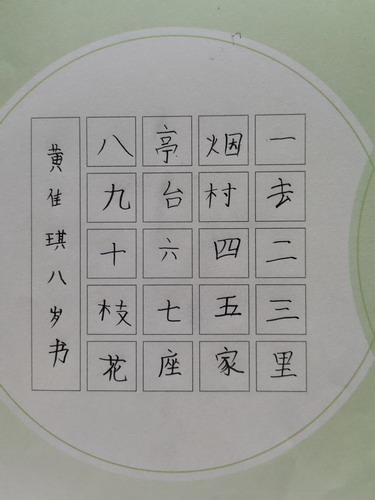 一去二三里
烟村四五家
亭台六七座
八九十枝花
黄佳琪八岁书